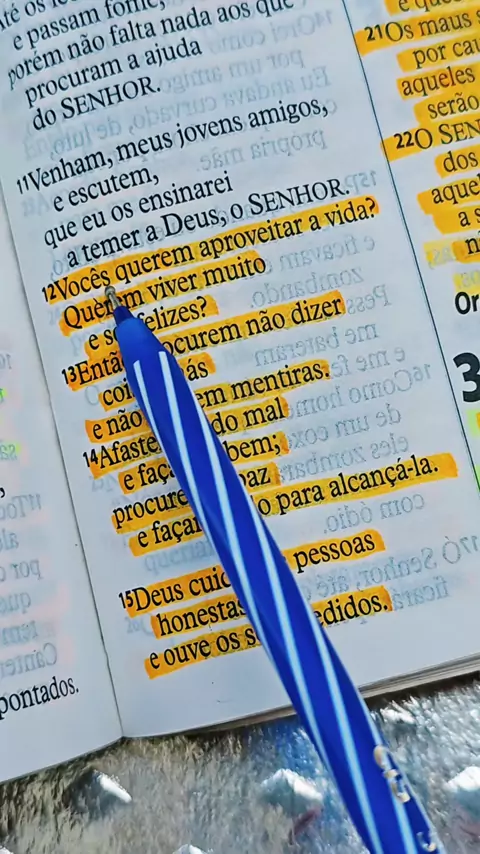 e passam fome,
porém não falta nada aos que
procuram a ajuda
do SENHOR.
11Venham, meus jovens amigos,
e escutem,
que eu os ensinarei
a temer a Deus, o SENHOR.
12Vocês querem aproveitar a vida?
Querem viver muito
e ser felizes?
13Então procurem não dizer
coi ás
e não em mentiras.
14Afaste do mal
e faç bem;
procure paz
e façam o para alcançá-la.
15Deus cui pessoas
honestas
e ouve os s edidos.
pontados.
21Os maus
por cau
aqueles
serão
22O SEN
dos
aquel
a s
Or
3